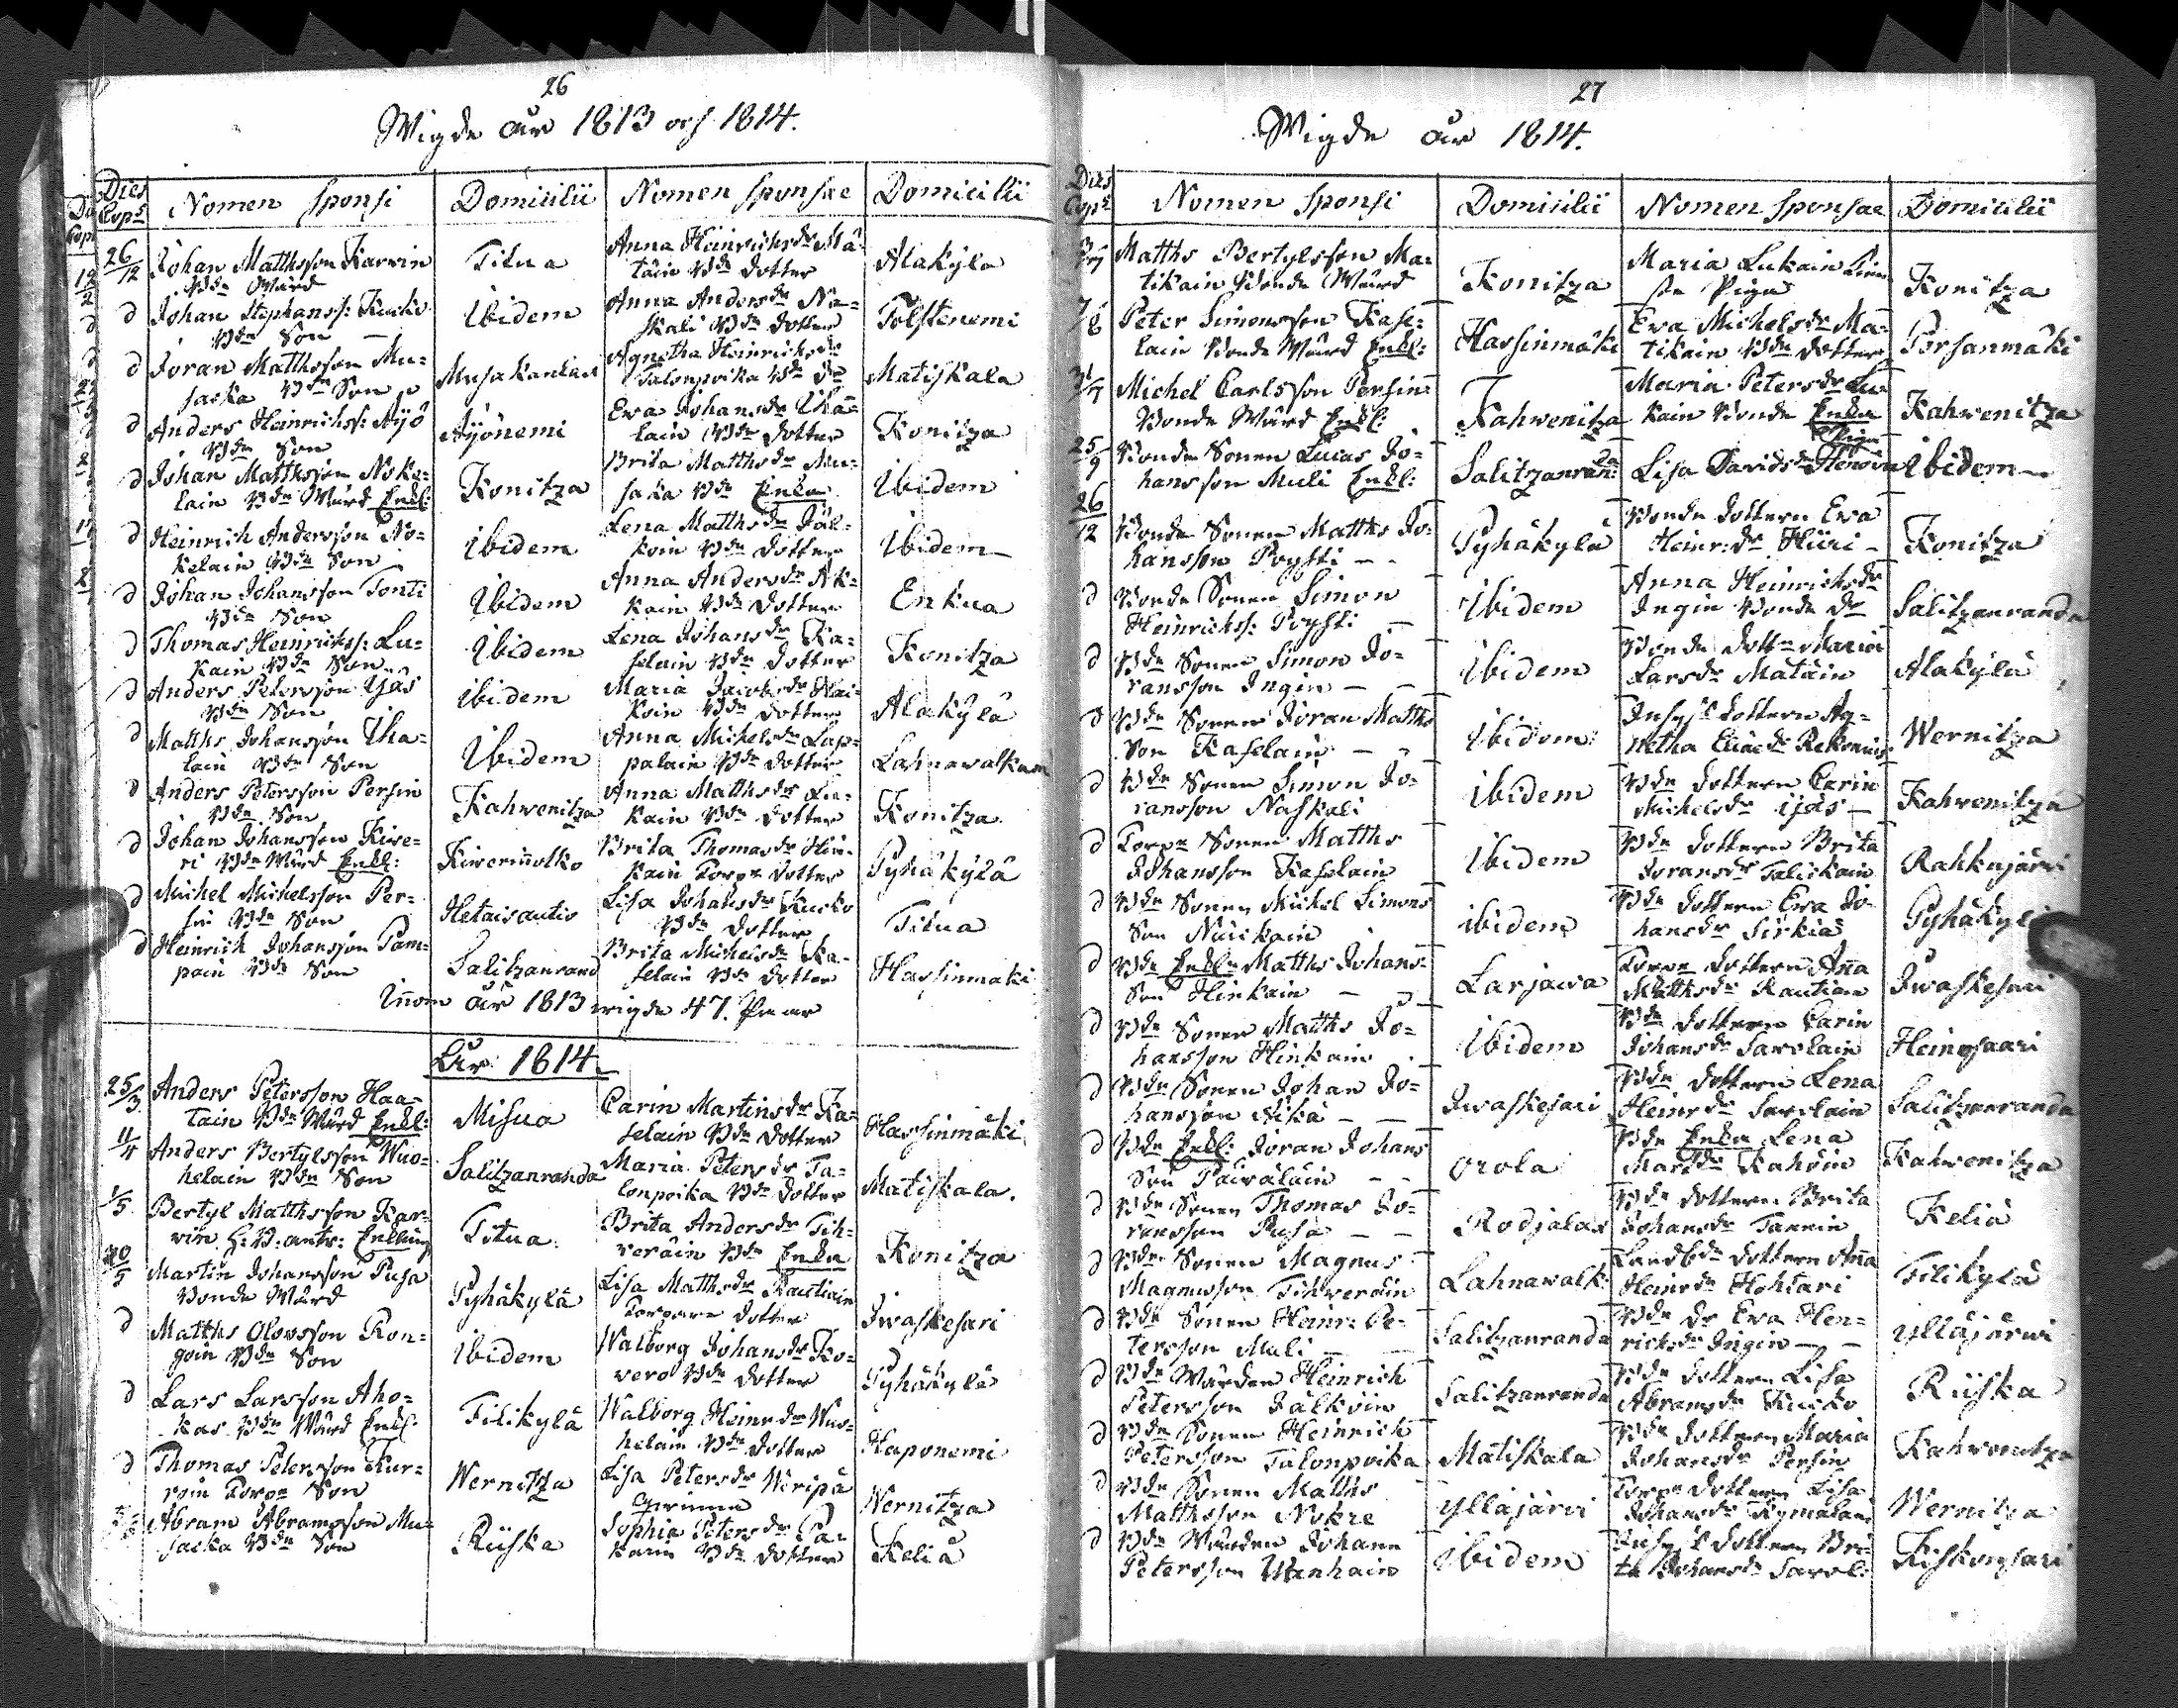 26
Wigde år 1813 och 1814.
Dies Copt
Nomen Sponsi
Domicilii
Nomen Sponsae
Domicilii
26/12 Johan Matthsson Karvin
Bde Wärd
Titua
Anna Heinrichsdr Mä-
täin Bde dotter
Alakylä
d Johan Stephanss: Kucko
Bde Son
Ibidem
Anna Andersdr Na-
skali Bde dotter
Tolstenemi
d Jöran Matthsson Mu-
sacka Bde Son
Musakanlax
Agnetha Heinrichsdr
Talonpoika Bde Dr
Matiskala
d Anders Heinrichss: Äyö
Bde Son
Äyönemi
Eva Johansdr Uha-
lain Bde dotter
Konitza
d Johan Matthsson Noke-
lain Bde Wärd Enkl:
Konitza
Brita Matthsdr Mu-
saka Bde Enka
Ibidem
d Heinrich Andersson No-
kelain Bde Son
Ibidem
Lena Matthsdr Jäl-
koin Bde dotter
Ibidem
d Johan Johansson Tonti
Bde Son
Ibidem
Anna Andersdr Ak-
kain Bde dotter
Enkua
d Thomas Heinrichss: Lu-
kain Bde Son
Ibidem
Lena Johansdr Ka-
selain Bde dotter
Konitza
d Anders Petersson Ijäs
Bde Son
Ibidem
Maria Jacobsdr Hai-
koin Bde dotter
Alakylä
d Matths Johansson Uha-
lain Bde Son
Ibidem
Anna Michelsdr Lap-
palain Bde dotter
Lahnavalkam
d Anders Petersson Persin
Bde Son
Kahvenitza
Anna Matthsdr Lu-
kain Bde dotter
Konitza
d Johan Johansson Kive-
ri Bde Wärd Enkl:
Kiverinotko
Brita Thomasdr Hin-
kain Torpe dotter
Pyhäkylä
d Michel Michelsson Per-
sin Bde Son
Hetaisautio
Lisa Johansdr Kucko
Bde dotter
Titua
d Heinrich Johansson Pam-
pain Bde Son
Salitzanrand
Brita Michelsdr Ka-
selain Bde dotter
Hassinmäki
Innom år 1813 wigde 47. Paar
År 1814
25/3 Anders Petersson Haa-
tain Bde Wärd Enkl:
Misua
Carin Martinsdr Ka-
selain Bde dotter
Hassinmäki
11/4 Anders Bertylsson Wuo-
helain Bde Son
Salitzanranda
Maria Petersdr Ta-
lonpoika Bde dotter
Matiskala.
1/5 Bertyl Matthsson Kar-
vin
Titua
Brita Andersdr Tih-
veräin Bde Enka
Konitza
Martin Johansson Pusa
Bonde Wärd
Pyhäkylä
Lisa Matthsdr Rautiain
Torpare dotter
Ivaskesari
d Matths Olovsson Ron-
goin Bde Son
Ibidem
Walborg Johansdr Ko-
vero Bde dotter
Pyhäkylä
d Lars Larsson Aho-
kas Bde Wärd Enkl:
Tilikylä
Walborg Heinrdr Wuo-
helain Bde dotter
Haponemi
d Thomas Petersson Kur-
roin Torpe Son
Wernitza
Lisa Petersdr Weripä
Wernitza
Abram Abramsson Mu-
sacka Bde Son
Riiska
Sophia Petersdr Pa-
karin Bde dotter
Keliä
27
Wigde år 1814.
Dies Copt
Nomen Sponsi
Domicilii
Nomen Sponsae
Domicilii
Matths Bertylsson Ma-
tikain Bonde Wärd
Konitza
Maria Lukain
Piga
Konitza
Peter Simonsson Kase-
lain Bonde Wärd Enkl:
Hassinmäki
Eva Michelsdr Ma-
tikain Bde dotter
Porsanmäki
Michel Carlsson Persin
Bonde Wärd Enkl:
Kahvenitza
Maria Petersdr Lu-
kain Bonde Enka
Kahvenitza
25/9 Bonde Sonen Lucas Jo-
hansson Muli Enkl:
Salitzanran:
Piga
Lisa Davidsdr
Ibidem
26/12 Bonde Sonen Matths Jo-
hansson Poysti
Pyhäkylä
Bonde dottern Eva
Heinr:dr Hiiri
Konitza
d Bonde Sonen Simon
Heinrichss: Poysti
Ibidem
Anna Heinrichsdr
Ingin Bonde Dr
Salitzanranda
d Bde Sonen Simon Jö-
ransson Ingin
Ibidem
Bonde dottn Maria
Larsdr Matäin
Alakylä
d Bde Sonen Jöran Matths
Son Kaselain
Ibidem
dottern Ag-
netha Eliaedr
Wernitza
d Bde Sonen Simon Jö-
ransson Naskali
Ibidem
Bde dottern Carin
Michelsdr Ijäs
Kahvenitza
d Torpe Sonen Matths
Johansson Kaselain
Ibidem
Bde dottern Brita
Joransdr Talickain
Rahkajärvi
d Bde Sonen Michel Simons
Son Nuickain
Ibidem
Bde dottern Eva Jo-
hansdr Sirkiä
Pyhäkylä
d Bde Enkl: Matths Johans-
Son Hinkain
Larjava
Torpe dottern Anna
Matthsdr Rautiain
Ivaskesari
d Bde Sonen Matths Jo-
hansson Hinkain
Ibidem
Bde dottern Carin
Johansdr Savolain
Heinosaari
d Bde Sonen Johan Jo-
hansson Nikä
Ivaskesari
Bde dottern Lena
Heinrdr Savolain
Salitzanranda
d Bde Enkl: Jöran Johans
Son Päiväläin
Orola
Bde Enka Lena
Kahöin
Kahvenitza
d Bde Sonen Thomas Jö-
ransson Pusa
Rodjalax
Bde dottern Brita
Johansdr Tannin
Keliä
d Bde Sonen Magnus
Magnusson Tihveräin
Lahnavalk:
dottern Anna
Heinrdr Hohtari
Tilikylä
d Bde Sonen Heinr: Pe-
tersson Muli
Salitzanranda
Bde Dr Eva Hen-
richsdr Ingin
Ylläjärvi
d Bde Wärden Heinrich
Petersson Jälköin
Salitzanranda
Bde dottern Lisa
Abramsdr Kucko
Riiska
d Bde Sonen Heinrich
Petersson Talonpoika
Matiskala
Bde dottern Maria
Johansdr Persin
Kahvenitza
d Bde Sonen Matths
Matthsson Nokre
Ylläjärvi
Torpe dottern Lisa
Johansdr Kymäläin
Wernitza
d Bde Wärden Johan
Petersson Wanhain
Ibidem
dottern Bri-
ta Johansdr Savol:
Kiskonsari